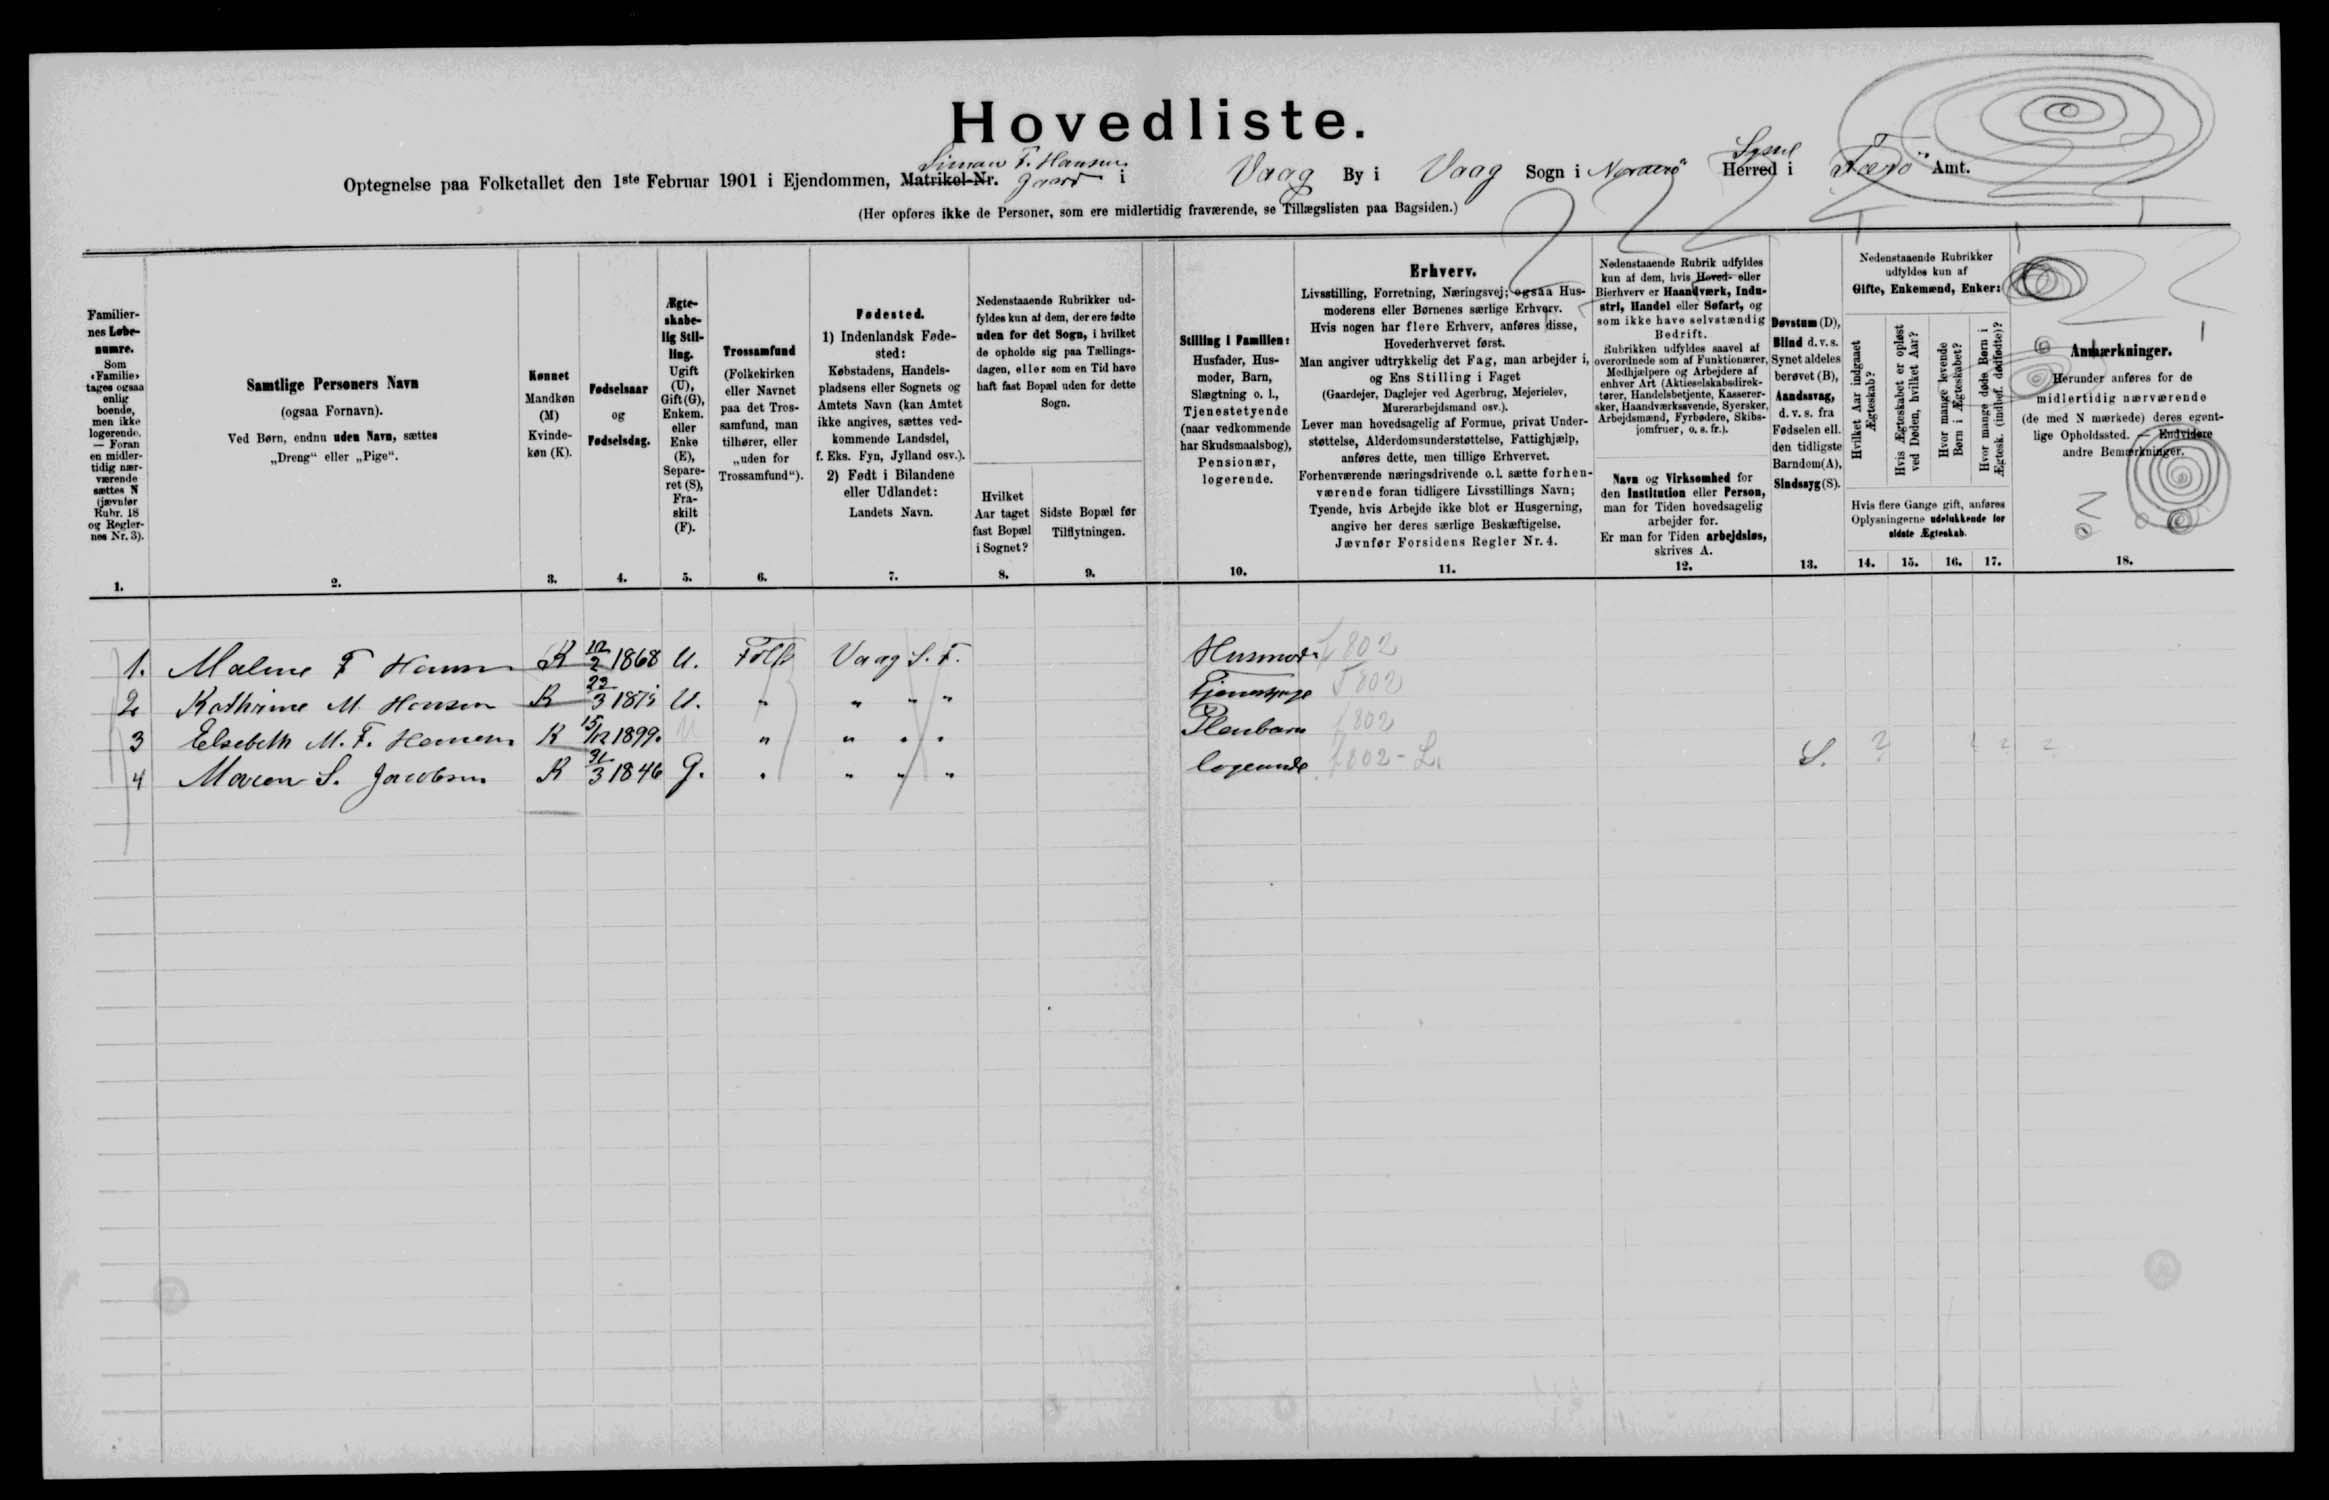 Hovedliste.
Simon F. Hansens
Optegnelse paa Folketallet den 1ste Februar 1901 i Ejendommen, Matrikel-Nr. Gaard i Vaag By i Vaag Sogn i Norderö Herred i Færö Amt.
Sysel
(Her opføres ikke de Personer, som ere midlertidig fraværende, se Tillægslisten paa Bagsiden.)
Familiernes Løbenumre.
Som «Familie» tages ogsaa enlig boende, men ikke logerende. — Foran en midlertidig nærværende sættes N (jævnfør Rubr. 18 og Reglernes Nr. 3).
1.
Samtlige Personers Navn
(ogsaa Fornavn).
Ved Børn, endnu uden Navn, sættes „Dreng“ eller „Pige“.
2.
Kønnet
Mandkøn (M)
Kvindekøn (K).
3.
Fødselsaar
og
Fødselsdag.
4.
Ægteskabelig Stilling.
Ugift (U), Gift (G), Enkem. eller Enke (E), Separeret (S), Fraskilt (F).
5.
Trossamfund
(Folkekirken eller Navnet paa det Trossamfund, man tilhører, eller „uden for Trossamfund“).
6.
Fødested.
1) Indenlandsk Fødested:
Købstadens, Handelspladsens eller Sognets og Amtets Navn (kan Amtet ikke angives, sættes vedkommende Landsdel, f. Eks. Fyn, Jylland osv.).
2) Født i Bilandene eller Udlandet:
Landets Navn.
7.
Nedenstaaende Rubrikker udfyldes kun af dem, der ere fødte uden for det Sogn, i hvilket de opholde sig paa Tællingsdagen, eller som en Tid have haft fast Bopæl uden for dette Sogn.
Hvilket Aar taget fast Bopæl i Sognet?
8.
Sidste Bopæl før Tilflytningen.
9.
Stilling i Familien:
Husfader, Husmoder, Barn, Slægtning o. l., Tjenestetyende (naar vedkommende har Skudsmaalsbog), Pensionær, logerende.
10.
Erhverv.
Livsstilling, Forretning, Næringsvej; ogsaa Husmoderens eller Børnenes særlige Erhverv.
Hvis nogen har flere Erhverv, anføres disse, Hovederhvervet først.
Man angiver udtrykkelig det Fag, man arbejder i, og Ens Stilling i Faget
(Gaardejer, Daglejer ved Agerbrug, Mejerielev, Murerarbejdsmand osv.).
Lever man hovedsagelig af Formue, privat Understøttelse, Alderdomsunderstøttelse, Fattighjælp, anføres dette, men tillige Erhvervet.
Forhenværende næringsdrivende o.l. sætte forhenværende foran tidligere Livsstillings Navn;
Tyende, hvis Arbejde ikke blot er Husgerning, angive her deres særlige Beskæftigelse.
Jævnfør Forsidens Regler Nr. 4.
11.
Nedenstaaende Rubrik udfyldes kun af dem, hvis Hoved- eller Bierhverv er Haandværk, Industri, Handel eller Søfart, og som ikke have selvstændig Bedrift.
Rubrikken udfyldes saavel af overordnede som af Funktionærer, Medhjælpere og Arbejdere af enhver Art (Aktieselskabsdirektører, Handelsbetjente, Kasserersker, Haandværkssvende, Syersker, Arbejdsmænd, Fyrbødere, Skibsjomfruer, o. s. fr.).
Navn og Virksomhed for den Institution eller Person, man for Tiden hovedsagelig arbejder for.
Er man for Tiden arbejdsløs, skrives A.
12.
Døvstum (D), Blind d. v. s. Synet aldeles berøvet (B), Aandssvag, d. v. s. fra Fødselen ell. den tidligste Barndom (A), Sindssyg (S).
13.
Nedenstaaende Rubrikker udfyldes kun af
Gifte, Enkemænd, Enker:
Hvilket Aar indgaaet Ægteskab?
Hvis Ægteskabet er opløst ved Døden, hvilket Aar?
Hvor mange levende Børn i Ægteskabet?
Hvor mange døde Børn i Ægtesk. (indbef. dødfødte)?
Hvis flere Gange gift, anføres Oplysningerne udelukkende for sidste Ægteskab.
14. 15. 16. 17.
Anmærkninger.
Herunder anføres for de midlertidig nærværende (de med N mærkede) deres egentlige Opholdssted. — Endvidere andre Bemærkninger.
18.
1. Malene F Hansen K 12/2 1868 U. Folk Vaag S. F. Husmod. f802
2 Kathrine M Hansen K 23/3 1875 U. " " " " Tjenestpige T802
3 Elsebeth M. F. Hansen K 15/12 1899. U " " " " Pleiebarn f802
4 Maren S. Jacobsen K 31/3 1846 G. " " " " logerende f802 - L. S. ? ? ? ?